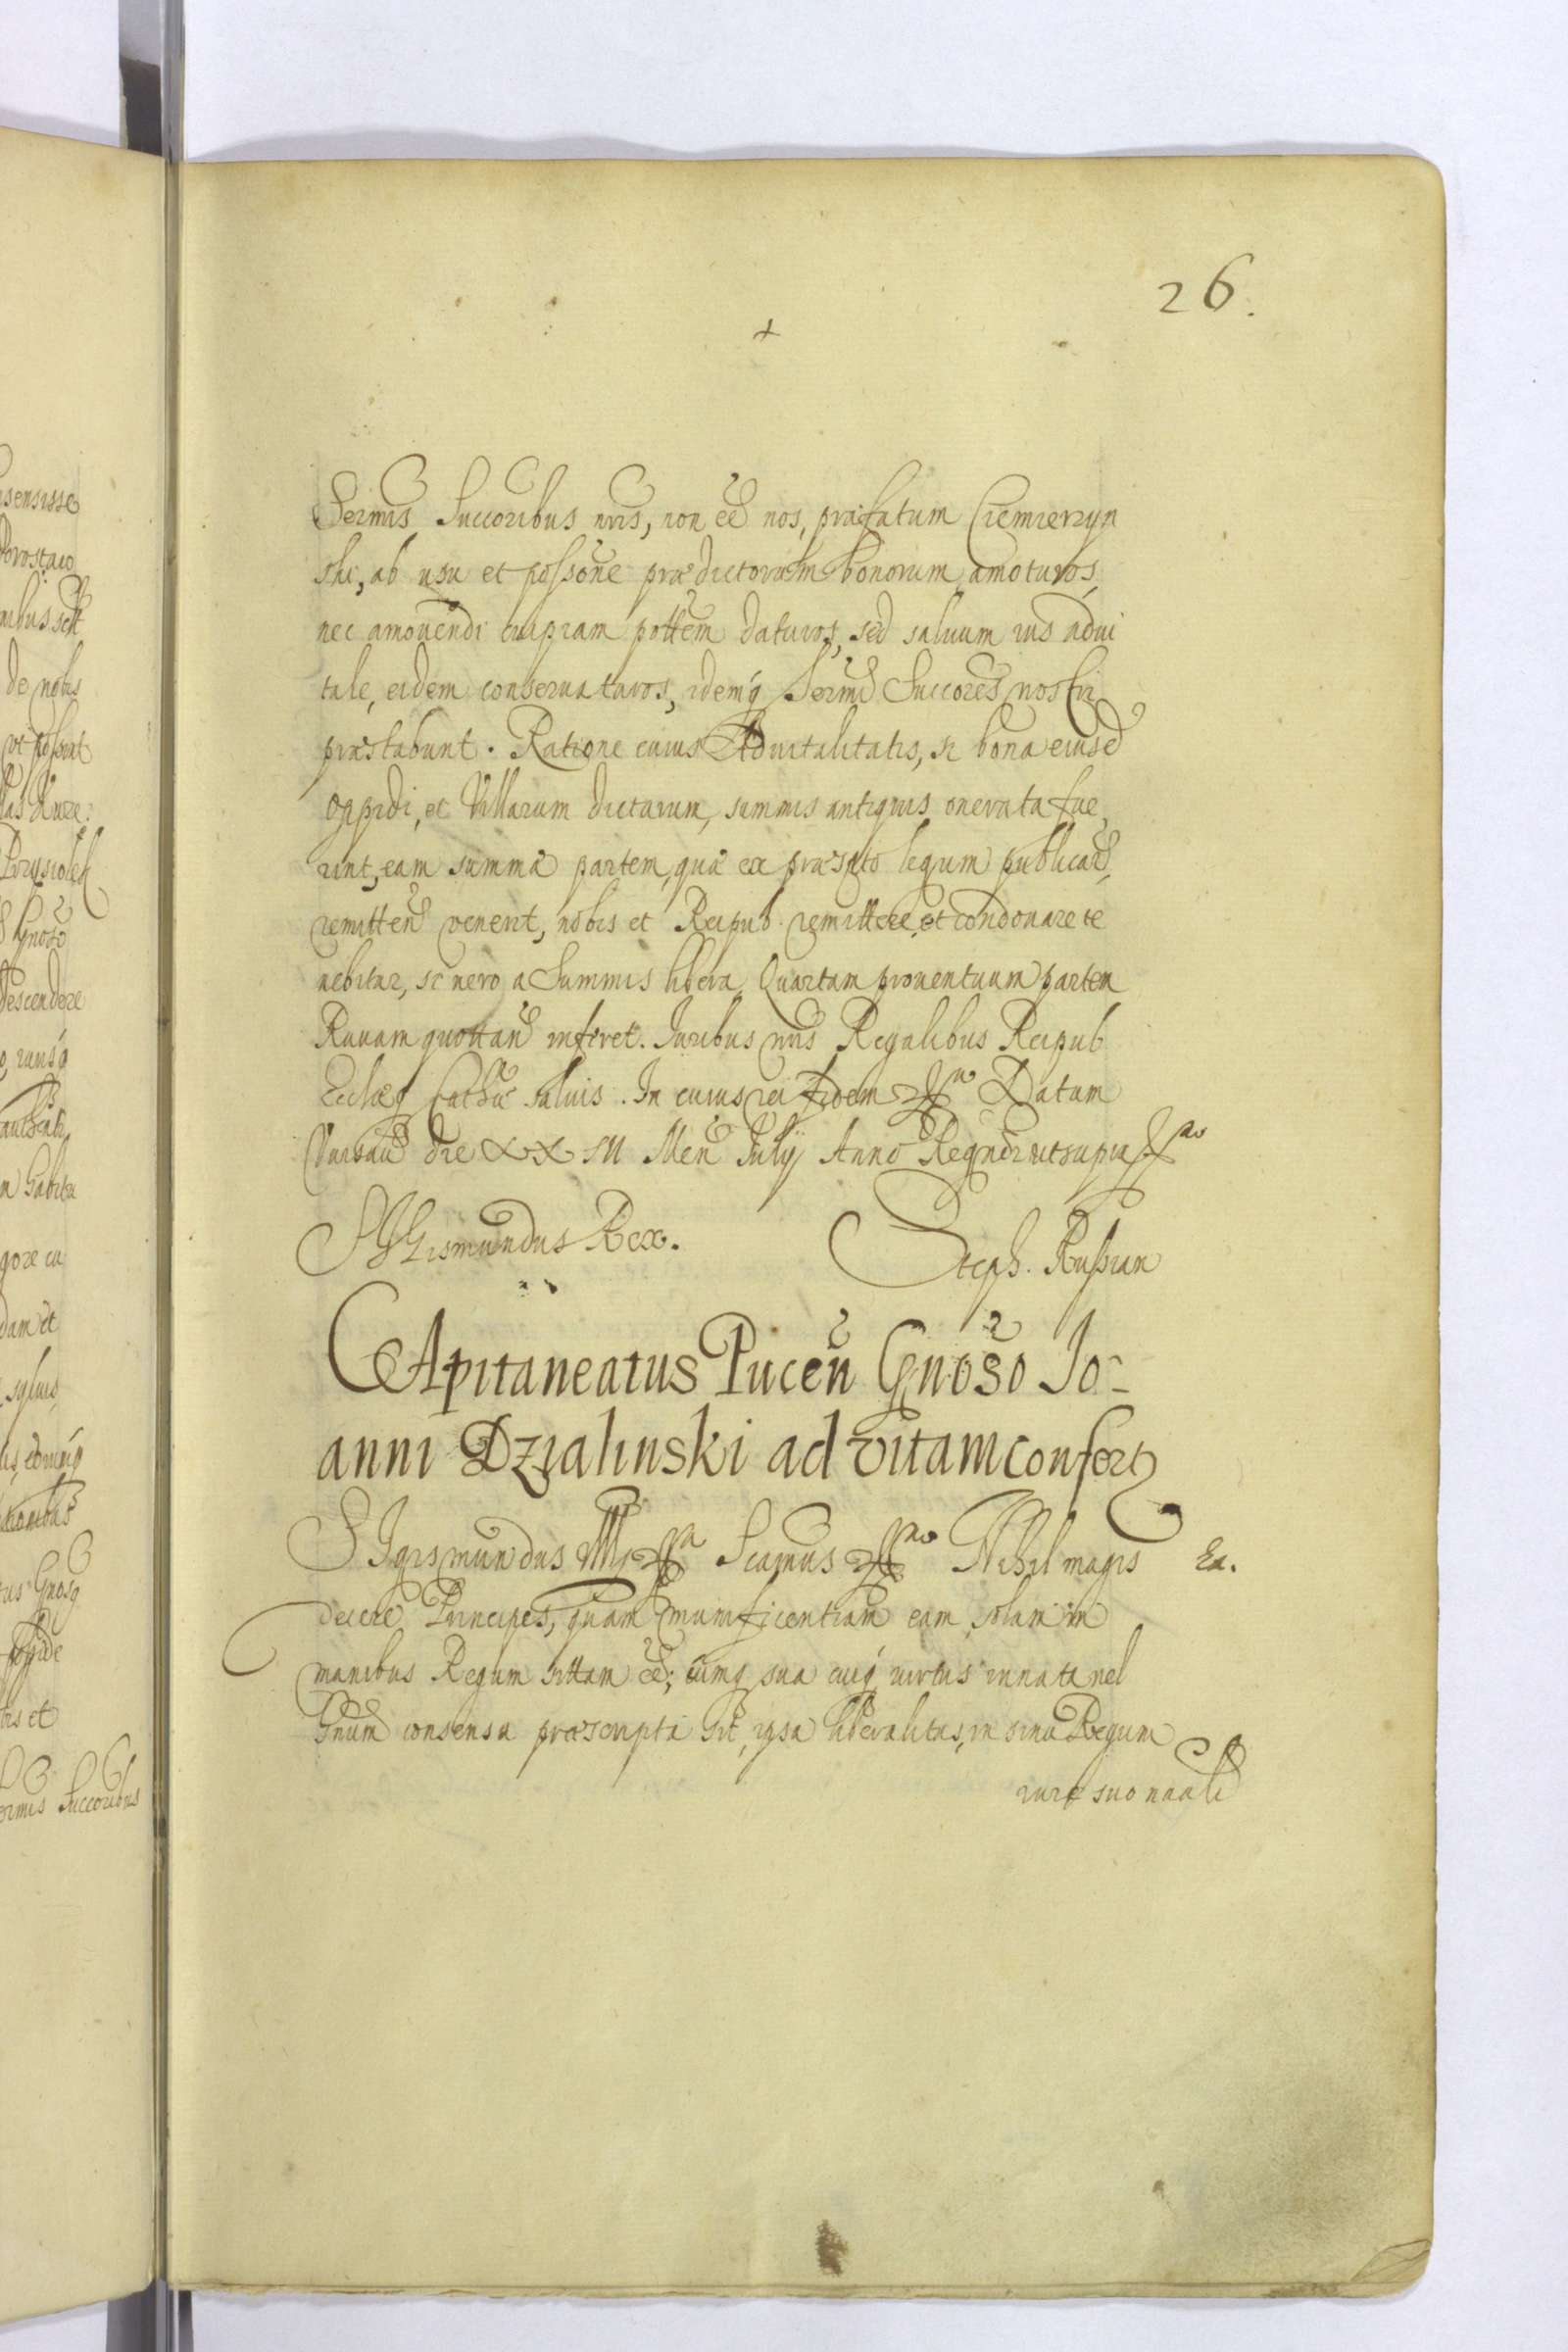 26.
Sermis Succoribus nris, non eē nos, præfatum Ciemierzyn
ski, ab usu et possone prædictorum bonorum amoturos,
nec amouendi cuipiam pottem daturos, sed saluum ius adui
tale, eidem conseruaturos, idemq Sermi Succores nostri
præstabunt. Ratione cuius Aduitalitatis, si bona eiusd
oppidi, et Villarum dictarum, summis antiquis onerata fue
rint, eam summæ partem, quæ ex præscpto legum publicar,
remitten venerit, nobis et Reipub. remittere, et condonare te
nebitur, si uero a Summis libera, Quartam prouentuum partem
Rauam quottan inferet. Iuribus nris Regalibus Reipub
Ecclæq Cathcæ saluis. In cuius rei fidem Datum
Varsau die XX III Men July Anno Regnor ut supra
Sigismundus Rex.
Steph. Russian
CApitaneatus Puceñ Gnoso Jo-
anni Dzialinski ad vitam confert
SIgismundus III Scamus Nihil magis
Ea.
decere Principes, quam munificentiam eam solam in
manibus Regum sittam eē; cumq sua cuiq uirtus innata uel
consensu præscripta sit, ipsa liberalitas, in sinu Regum
iure suo naali
sensisse
de nobis
possint
Gnoso
descendere
gore ca
dam et
tis et
ermis Succoribus